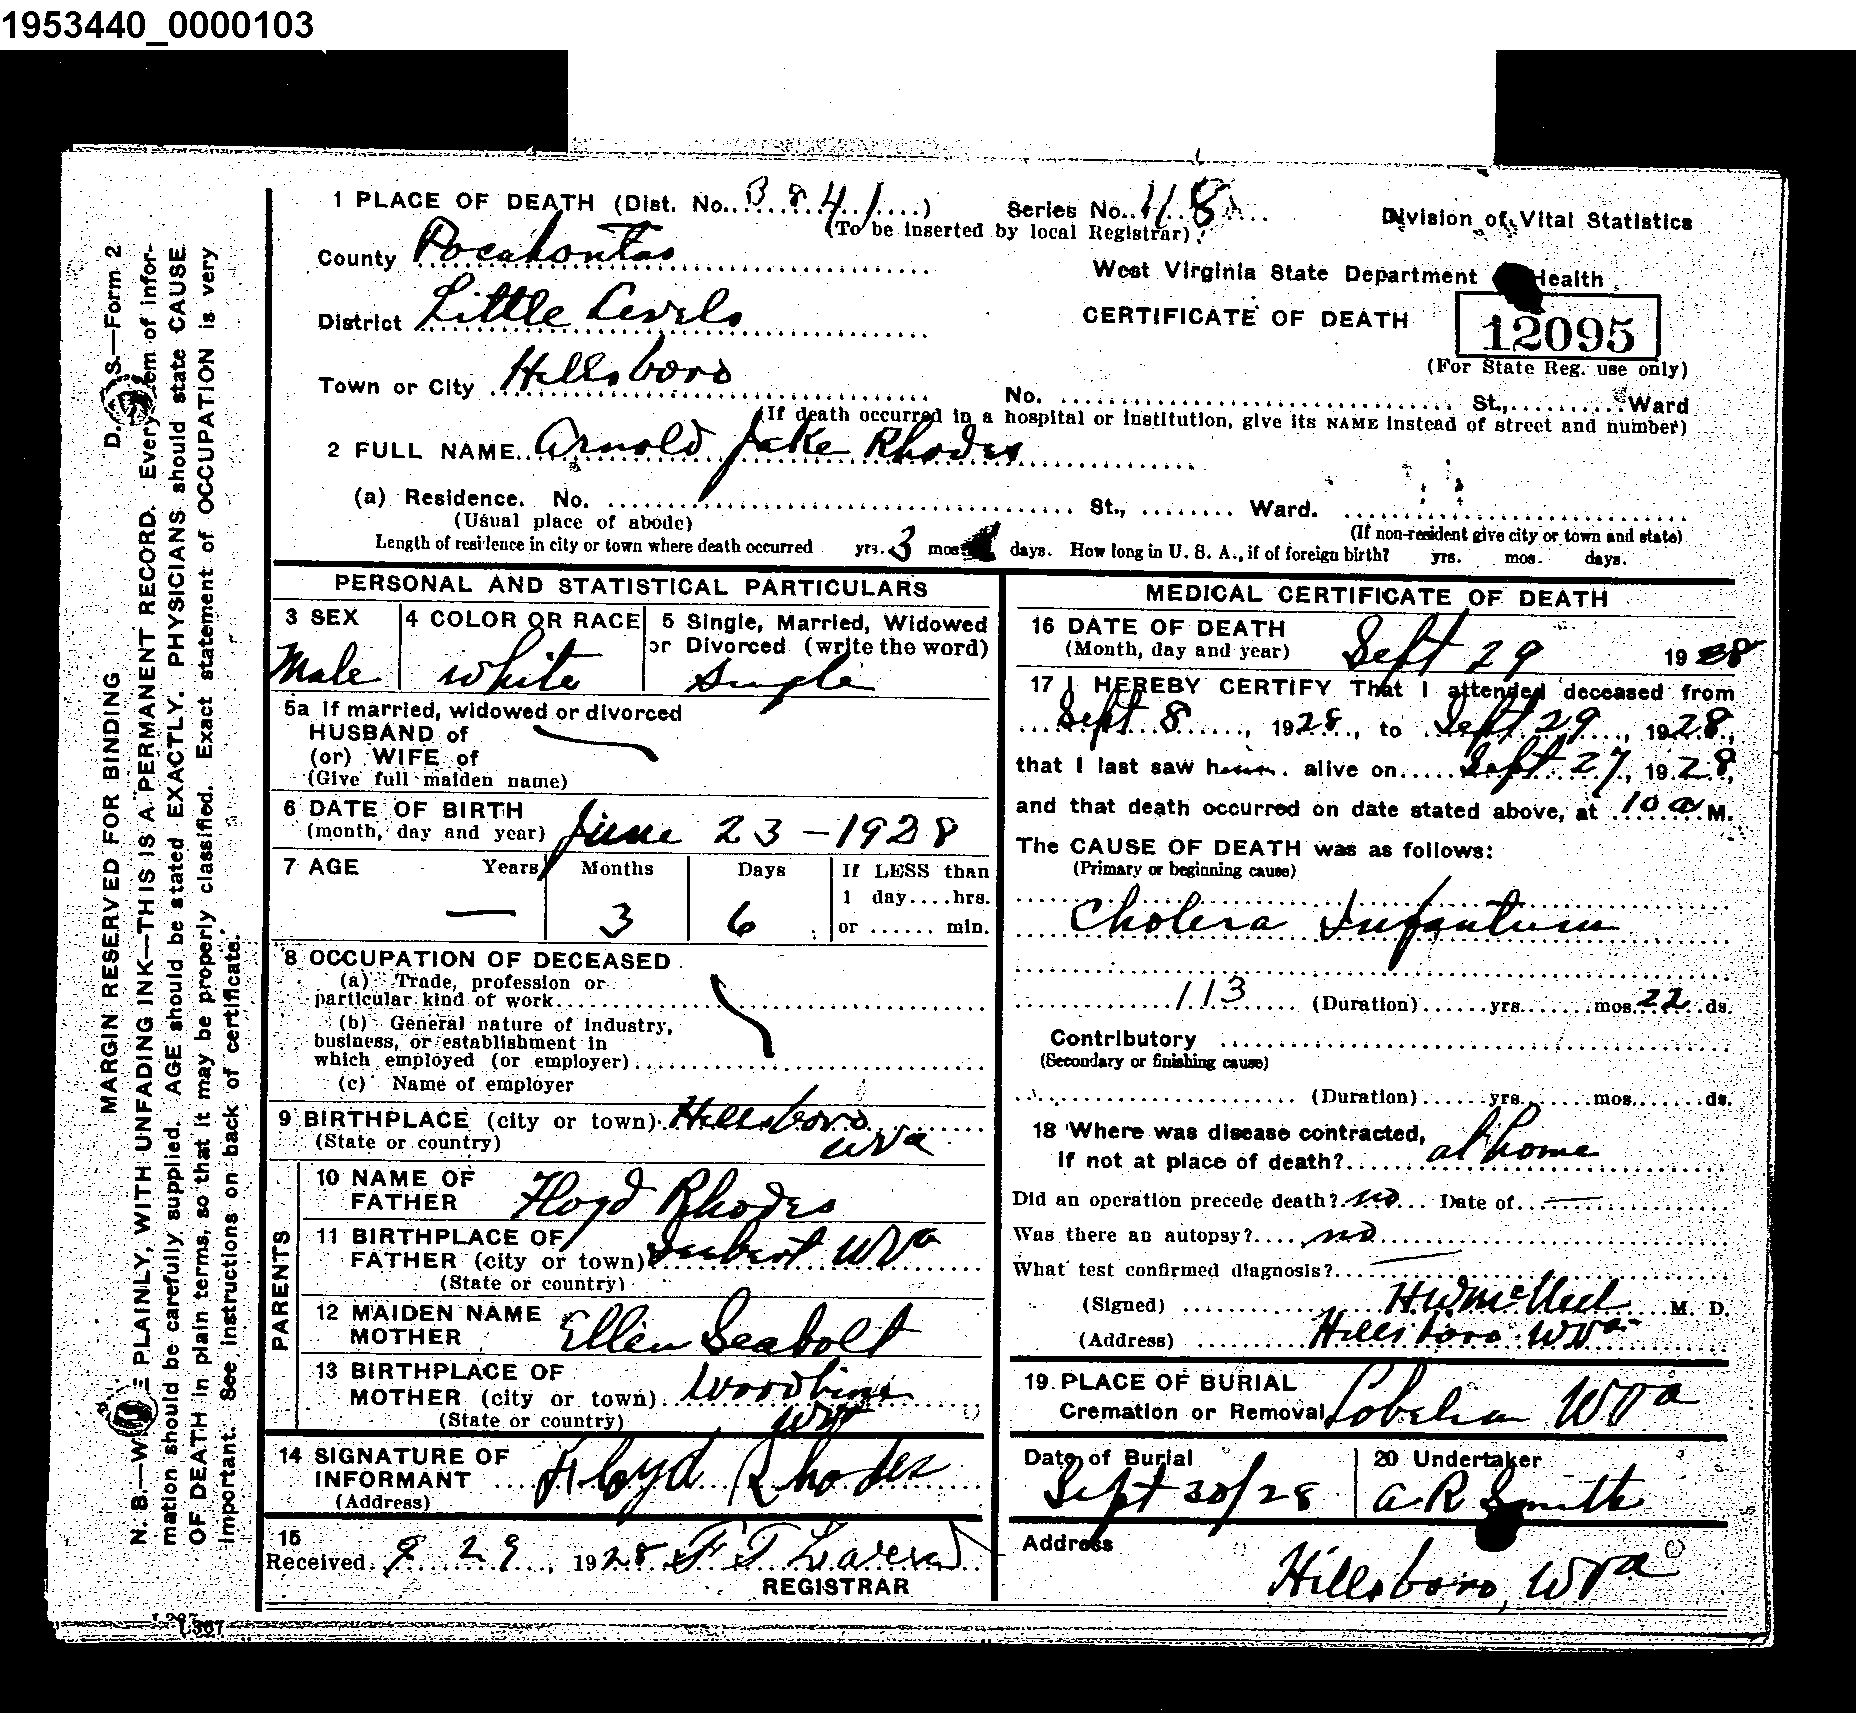 1953440_0000103
1 PLACE OF DEATH (Dist. No. B 841) Series No. 118
(To be inserted by local Registrar)
Division of Vital Statistics
County Pocahontas
West Virginia State Department Health
District Little Levels
CERTIFICATE OF DEATH
12095
(For State Reg. use only)
Town or City Hillsboro
No. St., Ward
(If death occurred in a hospital or institution, give its NAME instead of street and number)
2 FULL NAME Arnold Jake Rhodes
(a) Residence. No. St., Ward.
(Usual place of abode) (If non-resident give city or town and state)
Length of residence in city or town where death occurred yrs. 3 mos. days. How long in U. S. A., if of foreign birth? yrs. mos. days.
PERSONAL AND STATISTICAL PARTICULARS
3 SEX
Male
4 COLOR OR RACE
White
5 Single, Married, Widowed
or Divorced (write the word)
Single
5a If married, widowed or divorced
HUSBAND of
(or) WIFE of
(Give full maiden name)
6 DATE OF BIRTH
(month, day and year) June 23-1928
7 AGE Years Months Days If LESS than
1 day....hrs.
— 3 6 or ...... min.
8 OCCUPATION OF DECEASED
(a) Trade, profession or
particular kind of work
(b) General nature of industry,
business, or establishment in
which employed (or employer)
(c) Name of employer
9 BIRTHPLACE (city or town) Hillsboro
(State or country) WVa
PARENTS
10 NAME OF
FATHER Floyd Rhodes
11 BIRTHPLACE OF
FATHER (city or town) WVa
(State or country)
12 MAIDEN NAME
MOTHER Ellen Seabolt
13 BIRTHPLACE OF
MOTHER (city or town) Woodbine
(State or country) WVa
14 SIGNATURE OF
INFORMANT Floyd Rhodes
(Address)
15
Received 9 29, 1928 F T
REGISTRAR
MEDICAL CERTIFICATE OF DEATH
16 DATE OF DEATH
(Month, day and year) Sept 29 1928
17 I HEREBY CERTIFY That I attended deceased from
Sept 8, 1928, to Sept 29, 1928,
that I last saw him alive on Sept 27, 1928,
and that death occurred on date stated above, at 10 a M.
The CAUSE OF DEATH was as follows:
(Primary or beginning cause)
Cholera Infantum
113 (Duration) yrs. mos. 22 ds.
Contributory
(Secondary or finishing cause)
(Duration) yrs. mos. ds.
18 Where was disease contracted,
if not at place of death? at home
Did an operation precede death? no Date of —
Was there an autopsy? no
What test confirmed diagnosis? —
(Signed) H W McNeel M. D.
(Address) Hillsboro WVa
19 PLACE OF BURIAL
Cremation or Removal Lobelia WVa
Date of Burial
Sept 30/28
20 Undertaker
A R Smith
Address
Hillsboro, WVa
D. S.—Form 2
MARGIN RESERVED FOR BINDING
N. B.—W PLAINLY, WITH UNFADING INK—THIS IS A PERMANENT RECORD. Every item of infor-
mation should be carefully supplied. AGE should be stated EXACTLY. PHYSICIANS should state CAUSE
OF DEATH in plain terms, so that it may be properly classified. Exact statement of OCCUPATION is very
important. See instructions on back of certificate.